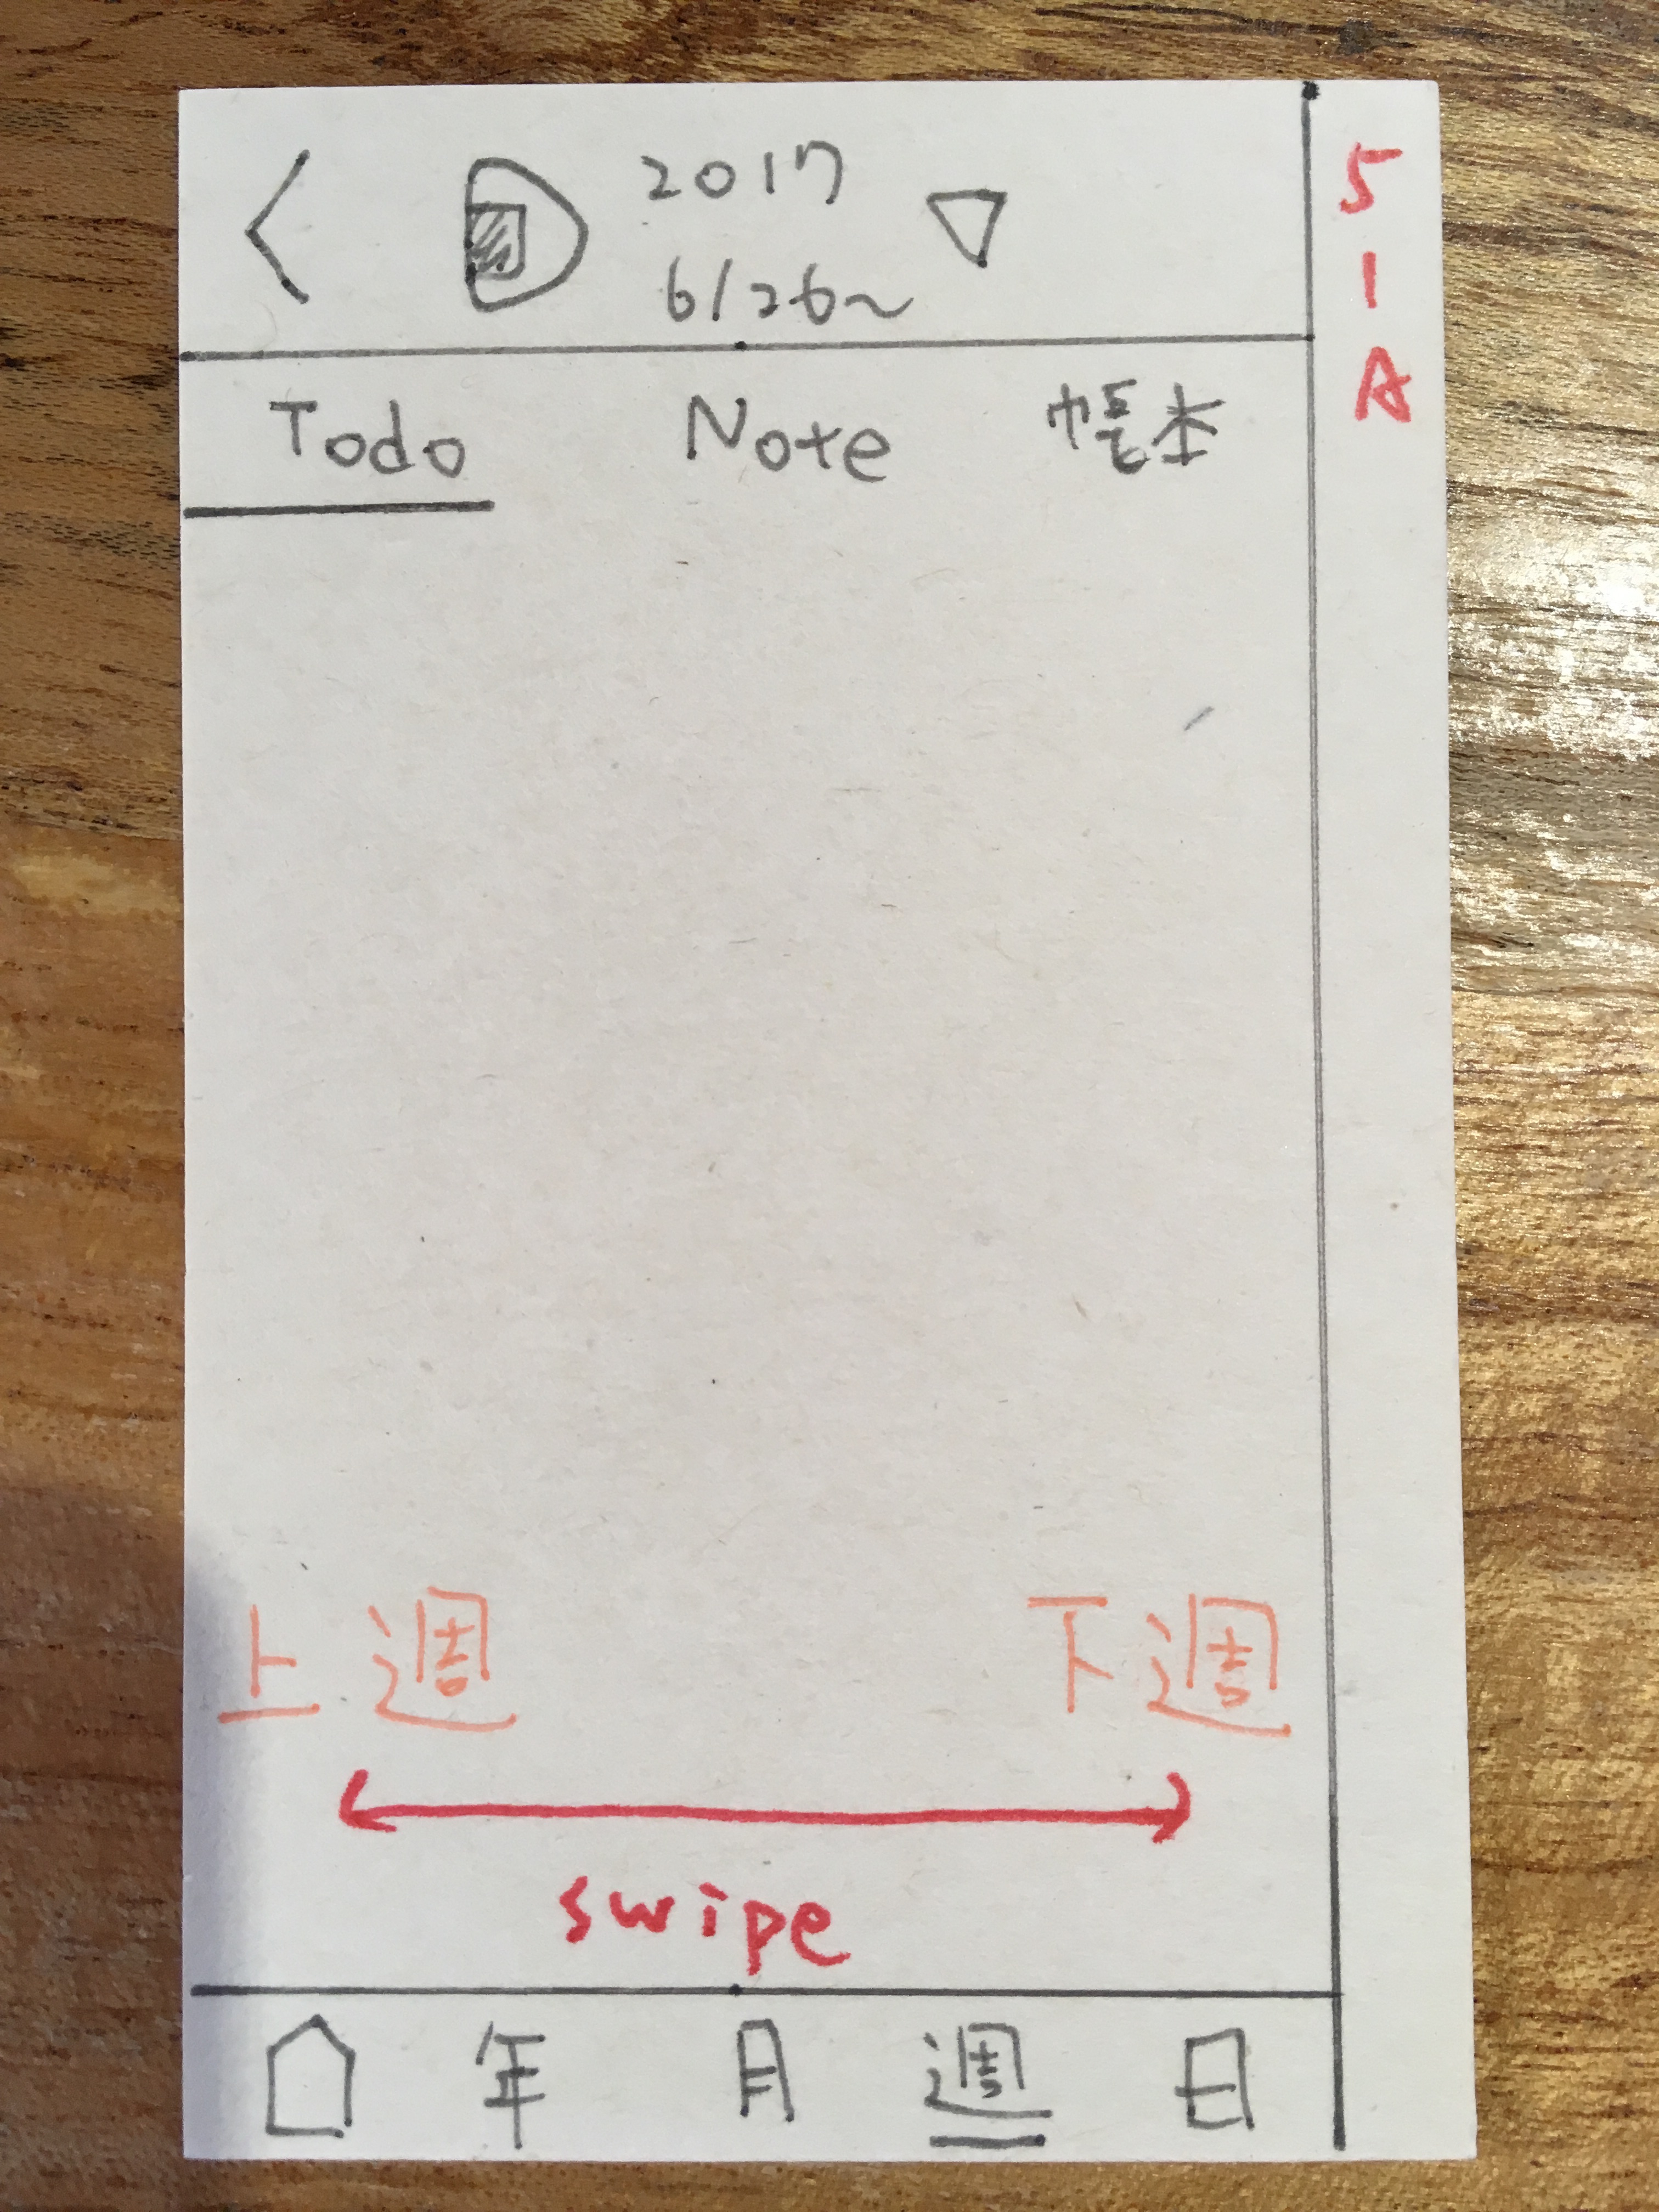 2017
6/26~
Todo Note 帳本
上週 下週
swipe
年 月 週 日
5
1
A